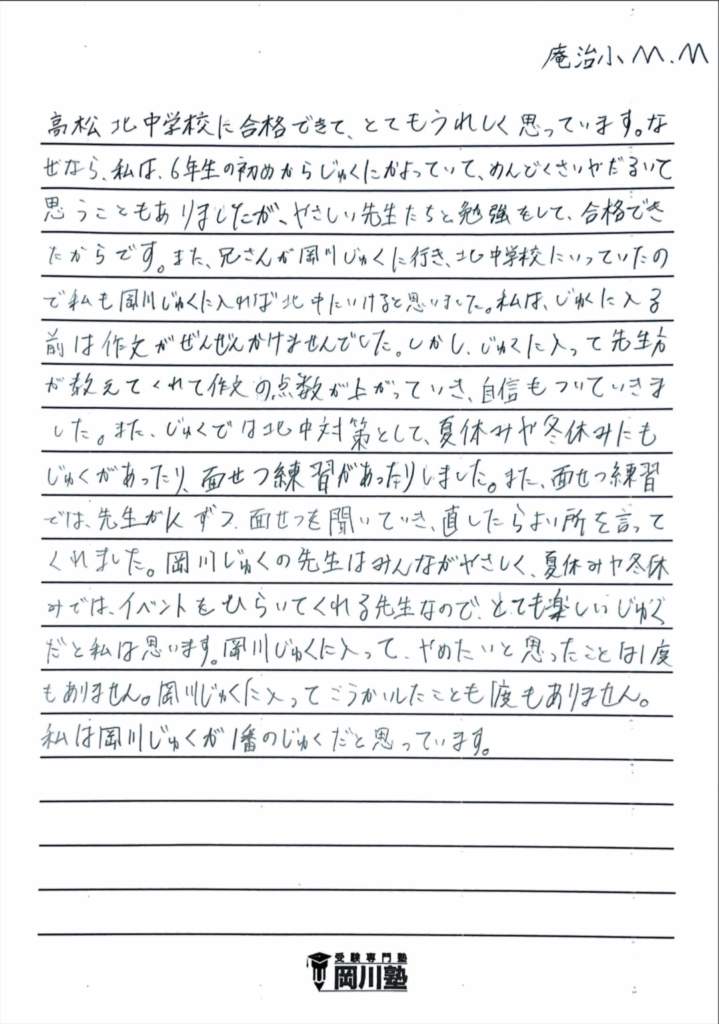 庵治小 M.M
高松北中学校に合格できて、とてもうれしく思っています。な
ぜなら、私は、6年生の初めからじゅくにかよっていて、めんどくさいやだるいて
思うこともありましたが、やさしい先生たちと勉強をして、合格でき
たからです。また、兄さんが岡川じゅくに行き、北中学校にいっていたの
で私も岡川じゅくに入れば北中にいけると思いました。私は、じゅくに入る
前は作文がぜんぜんかけませんでした。しかし、じゅくに入って先生方
が教えてくれて作文の点数が上がっていき、自信もついていきま
した。また、じゅくでは北中対策として、夏休みや冬休みにも
じゅくがあったり、面せつ練習があったりしました。また、面せつ練習
では、先生が1人ずつ、面せつを聞いていき、直したらよい所を言って
くれました。岡川じゅくの先生はみんながやさしく、夏休みや冬休
みでは、イベントをひらいてくれる先生なので、とても楽しいじゅく
だと私は思います。岡川じゅくに入って、やめたいと思ったことは1度
もありません。岡川じゅくに入ってこうかいしたことも1度もありません。
私は岡川じゅくが1番のじゅくだと思っています。
受験専門塾
岡川塾